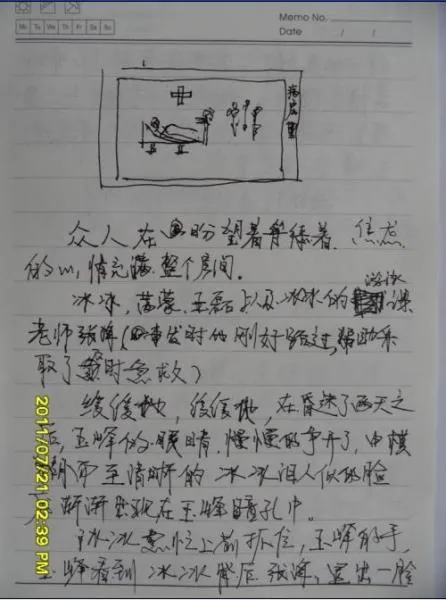 Memo No.
Date / /
Mo Tu We Th Fr Sa Su
病房里
众人在盼望着等待着,焦虑
的心情充满整个房间。
冰冰,茵蒙,王磊以及冰冰的游泳
老师张峰(事发时他刚好路过,帮助采
取了暂时急救)
缓缓地,缓缓地,在昏迷了两天之
后,玉峰的眼睛,慢慢的争开了,由模
糊而至清晰的冰冰泪人似的脸
渐渐出现在玉峰瞳孔中。
冰冰急忙上前抓住,玉峰的手,
玉峰看到冰冰背后张峰,露出一脸
2011/07/21 02:39 PM